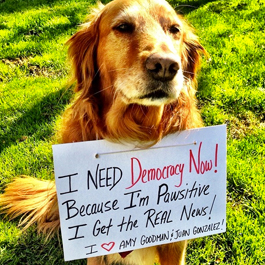 I NEED Democracy Now!
Because I'm Pawsitive
I Get the REAL News!
I ♥ AMY GOODMAN & JUAN GONZALEZ!